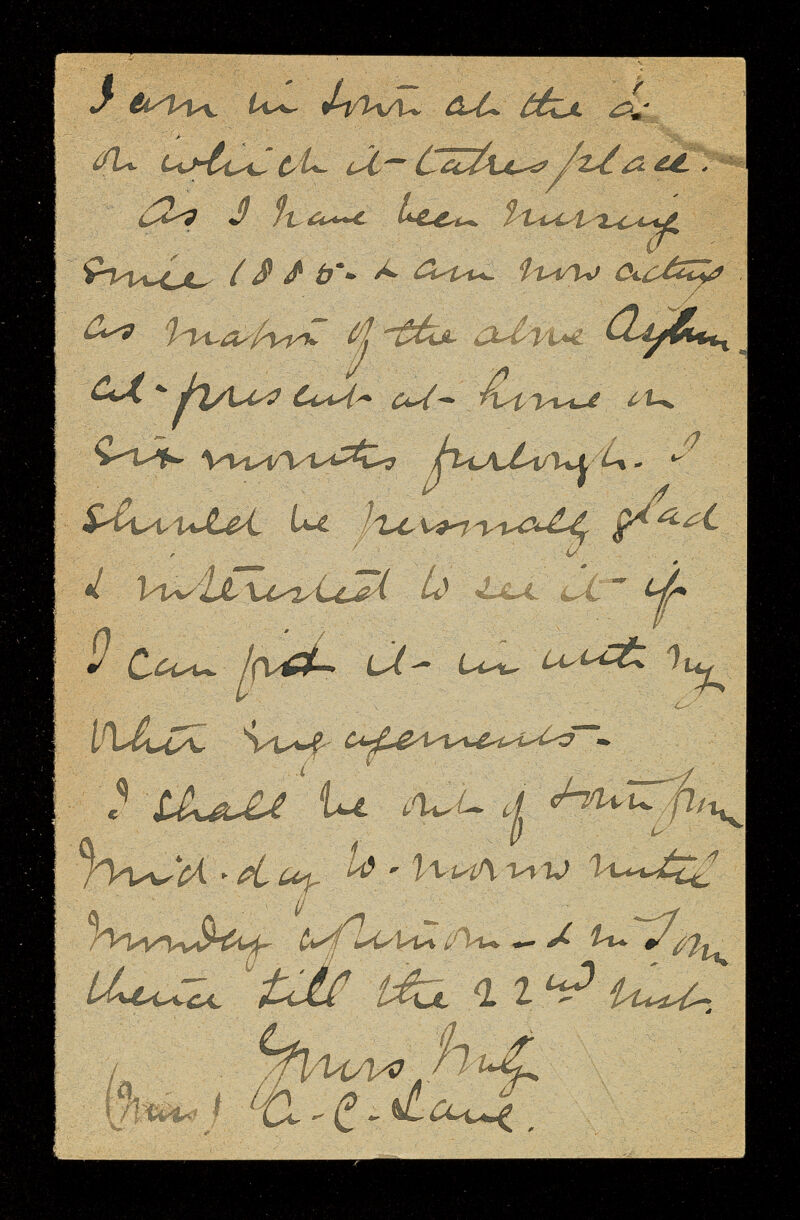 I am in town at the d
on which it takes place.
As I have been nursing
since 1885 - & am now acting
as matron of the above Asylum -
at present at home on
six months furlough. I
should be personally glad
& interested to see it if
I can fit it in with my
other engagements -
I shall be out of town from
Mid-day to-morrow until
Monday afternoon - & in Town
thence till the 22nd inst.
Yours truly
(Miss) A - C - Lane.